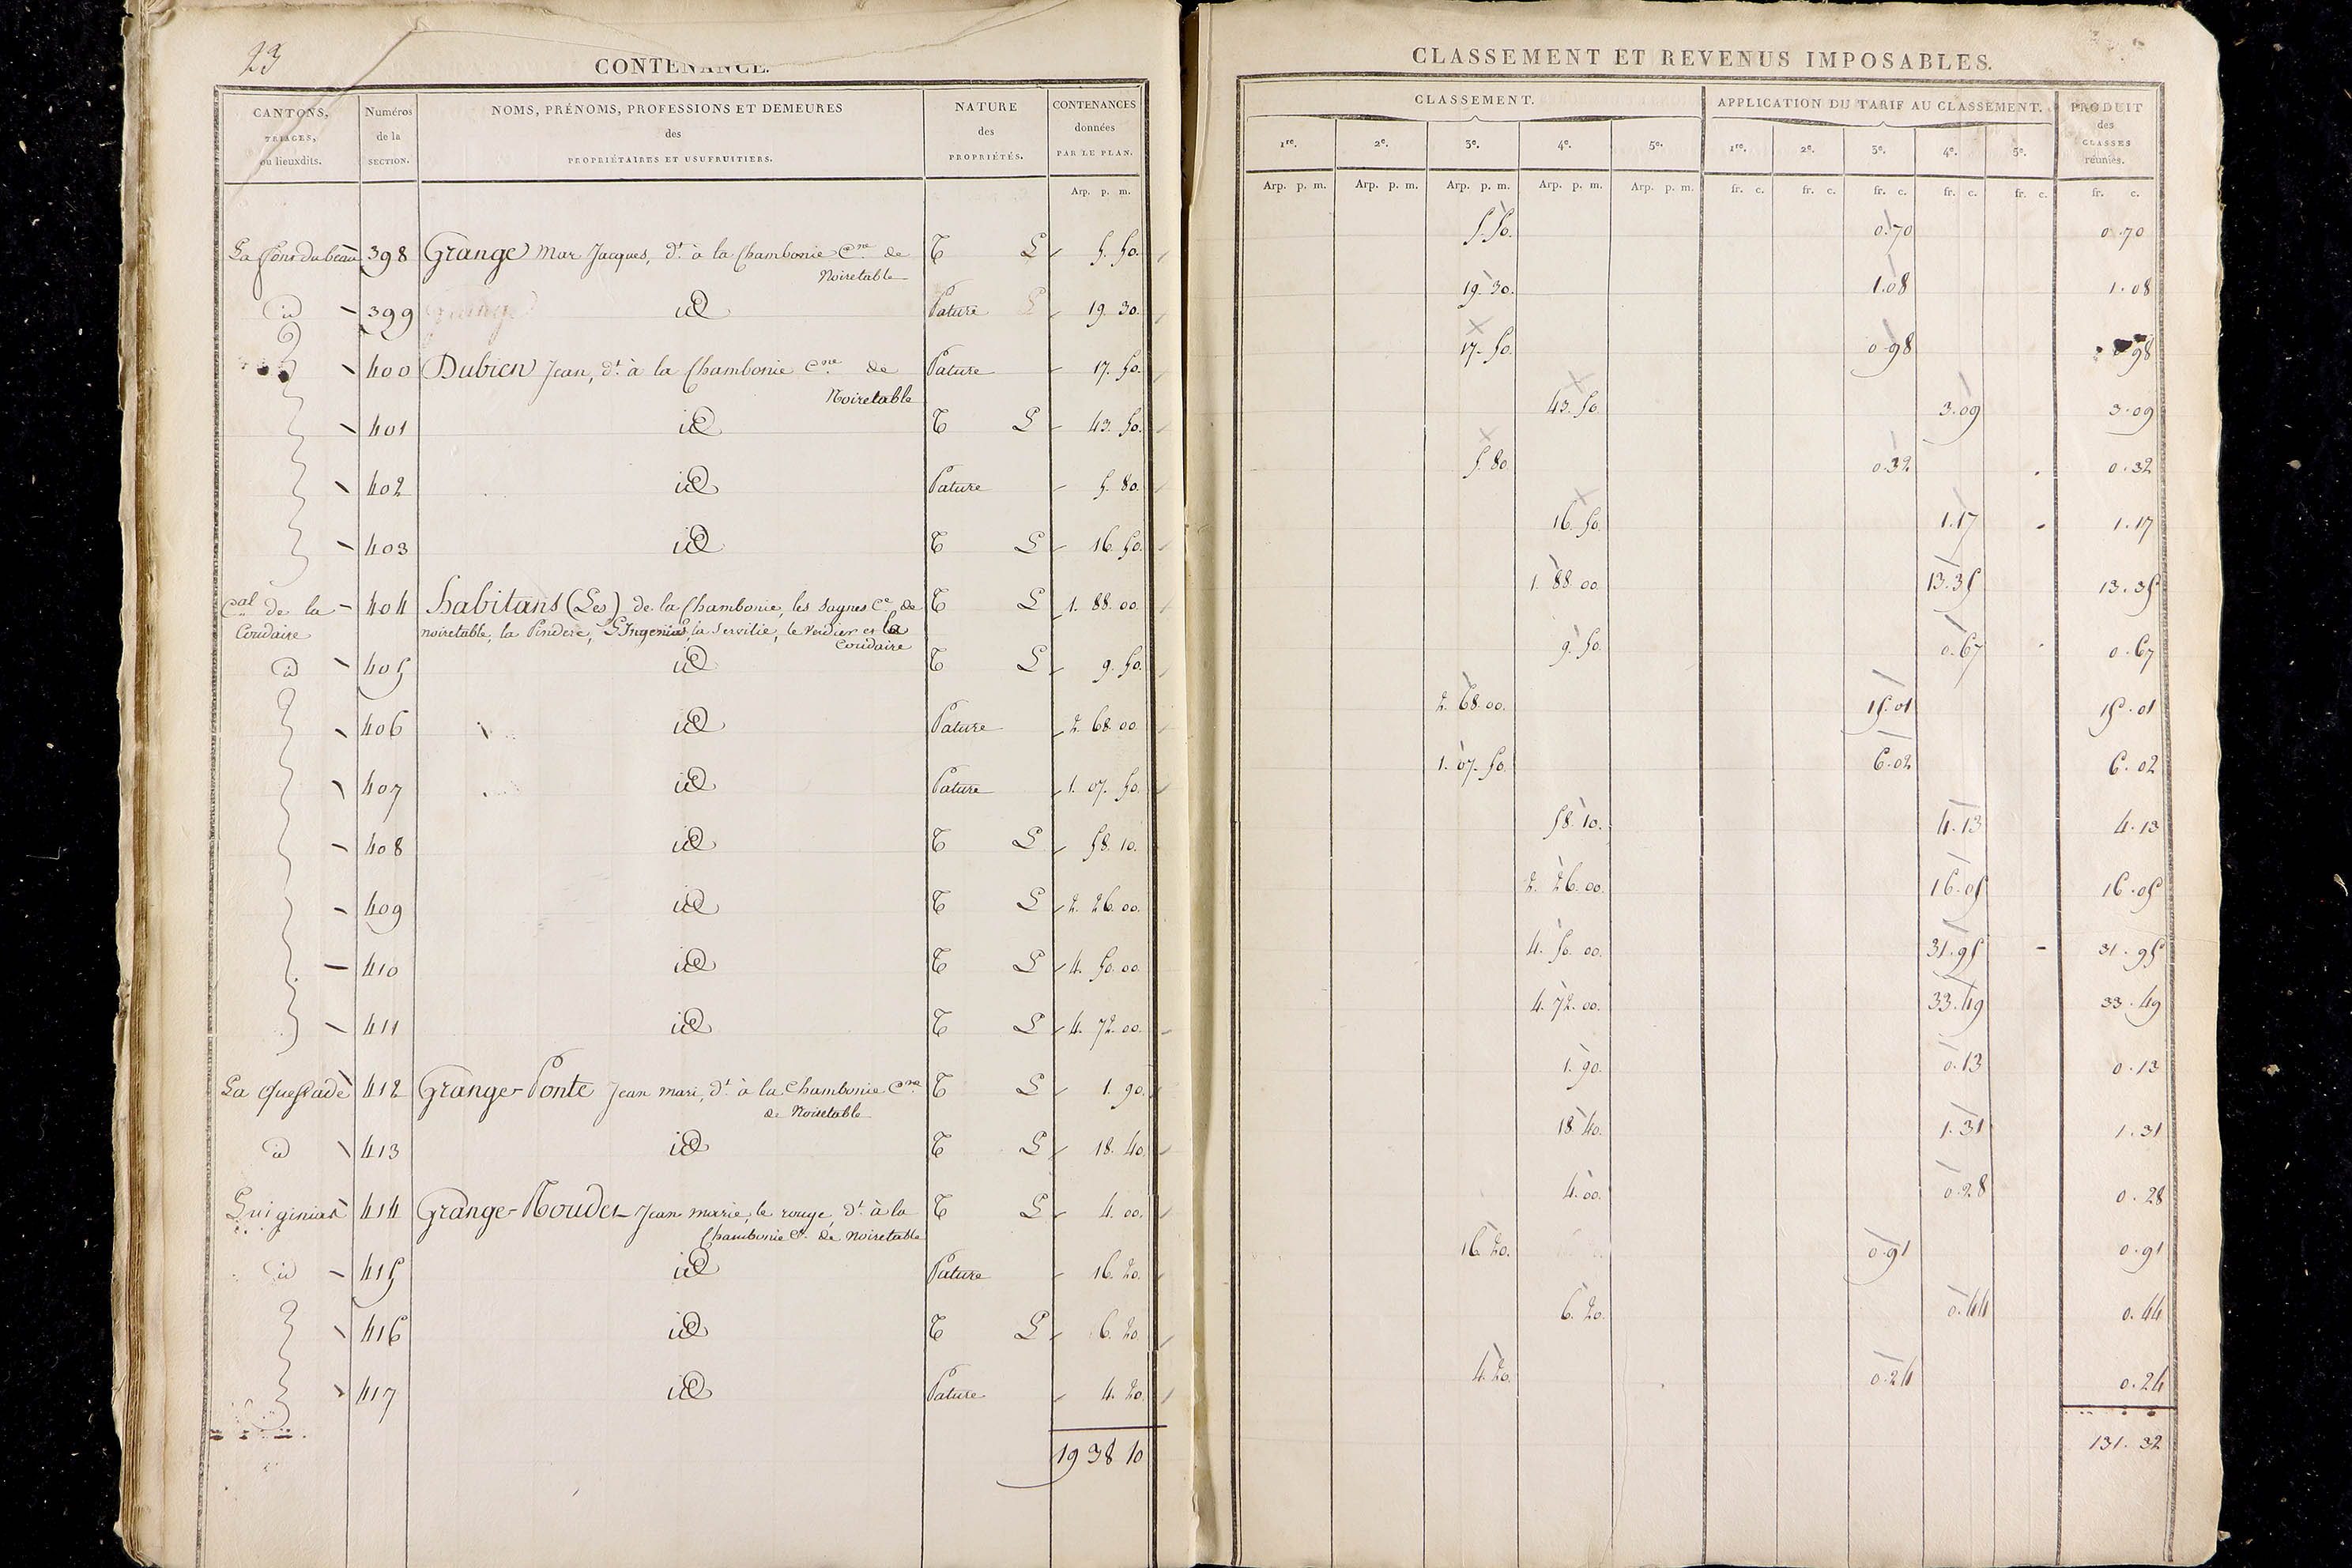 23
CONTENANCE.
CANTONS, TRIAGES, ou lieuxdits.
Numéros de la SECTION.
NOMS, PRÉNOMS, PROFESSIONS ET DEMEURES des PROPRIÉTAIRES ET USUFRUITIERS.
NATURE des PROPRIÉTÉS.
CONTENANCES données PAR LE PLAN.
Arp. p. m.
398 Grange Mar Jacques, dt. à la Chambonie Cne. de T L 5. 50.
Noiretable
id 399 id Pature 19. 30.
400 Dubien Jean, dt. à la Chambonie Cne. de Pature 17. 50.
Noiretable
401 id T L 43. 50.
402 id Pature 5. 80.
403 id T L 16. 50.
Cal de la 404 habitans (Les) de la Chambonie, les Sagnes Ce. de T L 1. 88. 00.
Coudaire noiretable, la Pindere, la Servilie, le Verdier et la
Coudaire
id 405 id T L 9. 50.
406 id Pature 2. 68. 00.
407 id Pature 1. 07. 50.
408 id T L 58. 10.
409 id T L 2. 26. 00.
410 id T L 4. 50. 00.
411 id T L 4. 72. 00.
412 Grange-Ponte Jean mari, dt. à la Chambonie Cne. T L 1. 90.
de Noiretable
id 413 id T L 18. 40.
414 Grange- Jean marie, le rouge, dt. à la T L 4. 00.
Chambonie Ce. de Noiretable
id 415 id Pature 16. 20.
416 id T L 6. 20.
417 id Pature 4. 20.
19 38 10
CLASSEMENT ET REVENUS IMPOSABLES.
CLASSEMENT.
APPLICATION DU TARIF AU CLASSEMENT.
PRODUIT des CLASSES réunies.
1re. 2e. 3e. 4e. 5e. 1re. 2e. 3e. 4e. 5e.
Arp. p. m. Arp. p. m. Arp. p. m. Arp. p. m. Arp. p. m. fr. c. fr. c. fr. c. fr. c. fr. c. fr. c.
5. 50. 0.70 0.70
19. 30. 1.08 1.08
17. 50. 0.98 0.98
43. 50. 3.09 3.09
5. 80. 0.32 0.32
16. 50. 1.17 1.17
1. 88. 00. 13.35 13.35
9. 50. 0.67 0.67
2. 68. 00. 15.01 15.01
1. 07. 50. 6.02 6.02
58. 10. 4.13 4.13
2. 26. 00. 16.05 16.05
4. 50. 00. 31.95 31.95
4. 72. 00. 33.49 33.49
1. 90. 0.13 0.13
18. 40. 1.31 1.31
4. 00. 0.28 0.28
16. 20. 0.91 0.91
6. 20. 0.44 0.44
4. 20. 0.24 0.24
131. 32